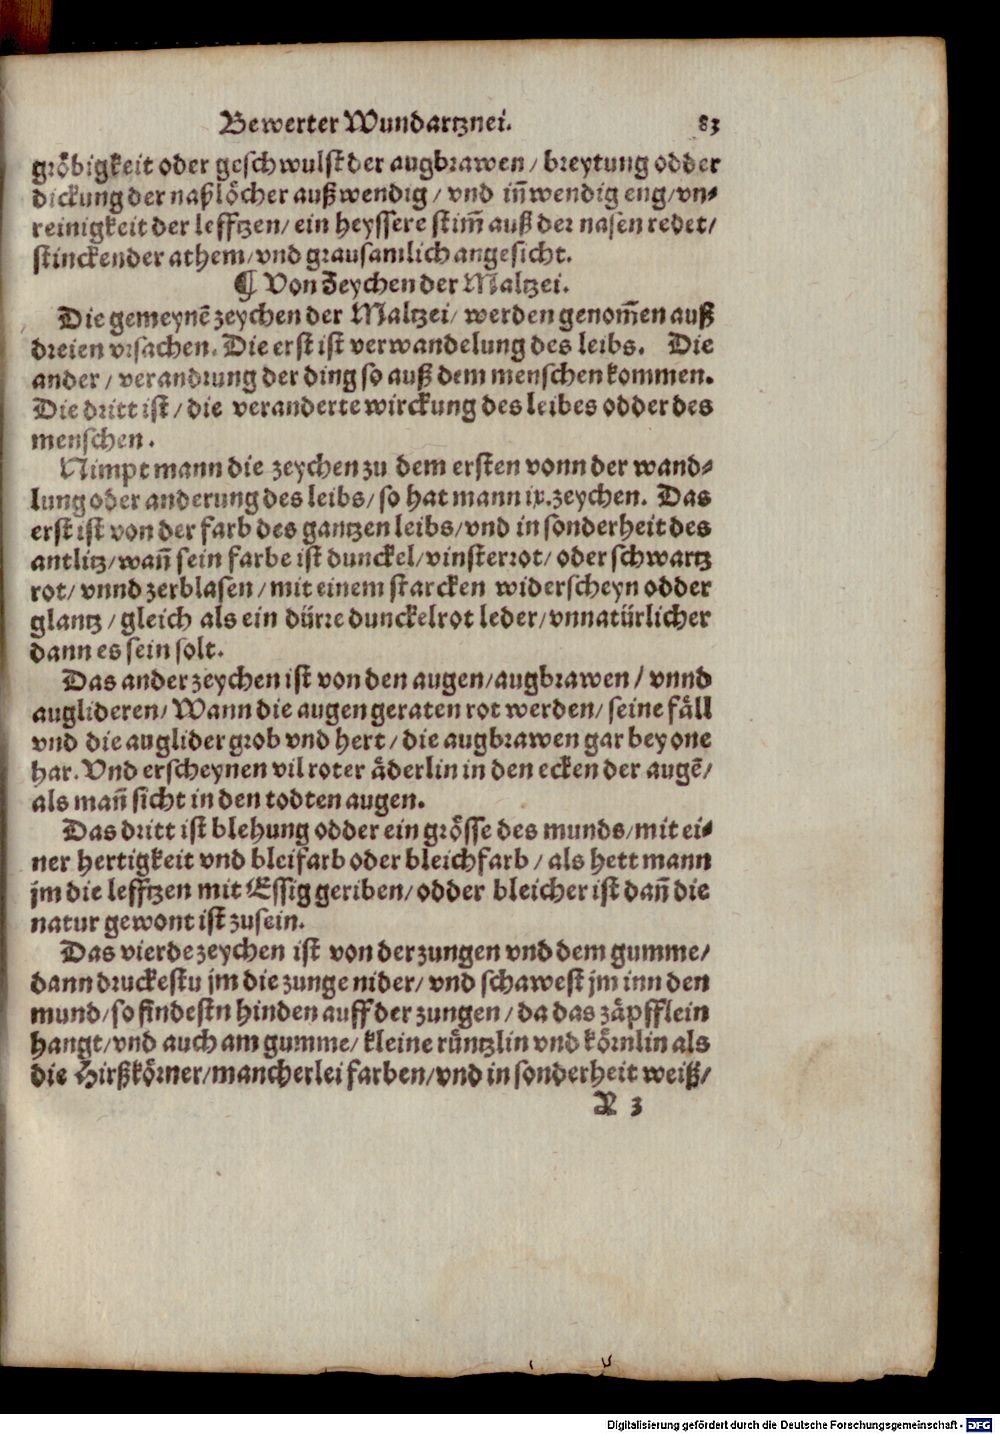 Bewerter Wundartznei. 83
gröbigkeit oder geschwulst der augbrawen / breytung odder
dickung der naßlöcher außwendig / vnd in̄wendig eng/vn⸗
reinigkeit der lefftzen/ ein heyssere stim̄ auß der nasen redet/
stinckender athem/vnd grausamlich angesicht.
¶ Von Zeychen der Maltzei.
Die gemeynē zeychen der Maltzei/ werden genom̄en auß
dreien vrsachen. Die erst ist verwandelung des leibs. Die
ander / verandrung der ding so auß dem menschen kommen.
Die dritt ist / die veranderte wirckung des leibes odder des
menschen.
Nimpt mann die zeychen zu dem ersten vonn der wand⸗
lung oder anderung des leibs/ so hat mann ix. zeychen. Das
erst ist von der farb des gantzen leibs/vnd in sonderheit des
antlitz/wan̄ sein farbe ist dunckel/vinsterrot/ oder schwartz
rot/ vnnd zerblasen / mit einem starcken widerscheyn odder
glantz / gleich als ein dürre dunckelrot leder/vnnatürlicher
dann es sein solt.
Das ander zeychen ist von den augen/augbrawen / vnnd
auglideren/ Wann die augen geraten rot werden/ seine fäll
vnd die auglider grob vnd hert / die augbrawen gar bey one
har. Vnd erscheynen vil roter äderlin in den ecken der augē/
als man̄ sicht in den todten augen.
Das dritt ist blehung odder ein grösse des munds/mit ei⸗
ner hertigkeit vnd bleifarb oder bleichfarb / als hett mann
jm die lefftzen mit Essig geriben/ odder bleicher ist dan̄ die
natur gewont ist zusein.
Das vierde zeychen ist von der zungen vnd dem gumme/
dann druckestu jm die zunge nider/ vnd schawest jm inn den
mund/so findestn hinden auff der zungen / da das zäpfflein
hangt/vnd auch am gumme/ kleine rüntzlin vnd körnlin als
die Hirßkörner/mancherlei farben/vnd in sonderheit weiß/
X 3
Digitalisierung gefördert durch die Deutsche Forschungsgemeinschaft - DFG